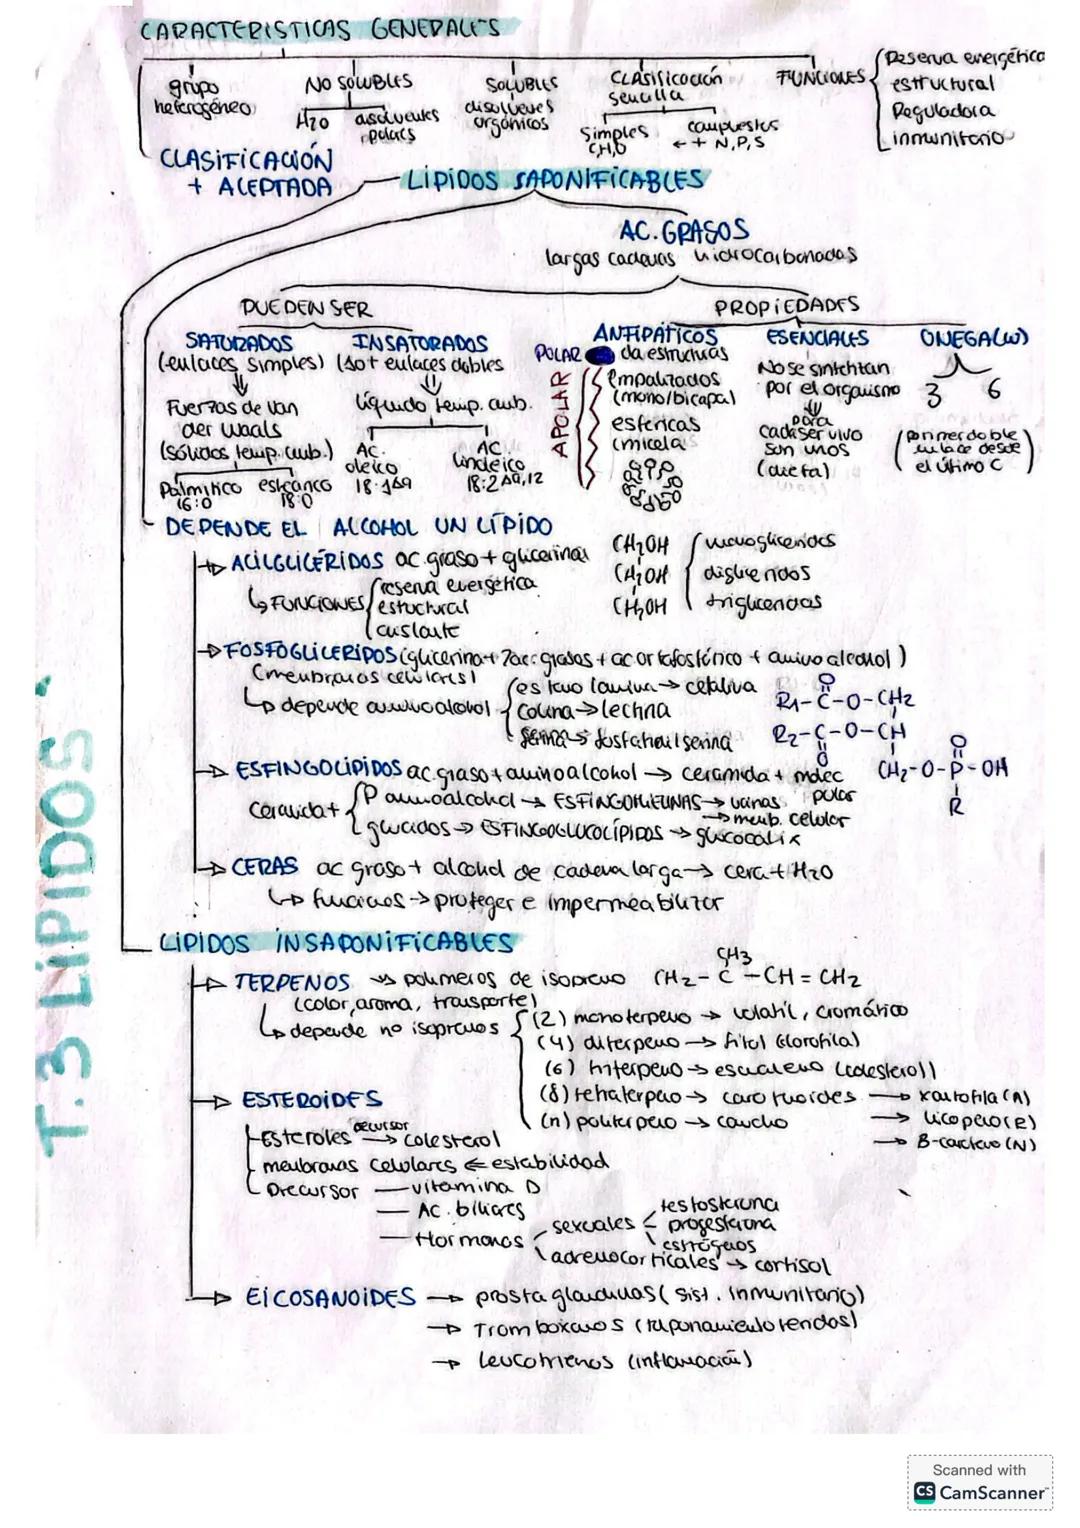 CARACTERISTICAS GENERALES
grupo heterogéneo
NO SOLUBLES
H2O
disolventes polares
SOLUBLES
disolventes orgánicos
Clasificación sencilla
Simples
C,H,O
compuestos
← + N,P,S
FUNCIONES
Reserva energética
estructural
Reguladora
inmunitario
CLASIFICACIÓN
+ ACEPTADA
LÍPIDOS SAPONIFICABLES
AC. GRASOS
largas cadenas hidrocarbonadas
PUEDEN SER
PROPIEDADES
SATURADOS
(enlaces simples)
Fuerzas de Van
der Waals
(sólidos temp. amb.)
Palmitico
16:0
esteárico
18:0
INSATURADOS
(1 o + enlaces dobles
líquido temp. amb.
AC.
oleico
18:1Δ9
AC.
linoleico
18:2Δ9,12
ANFIPÁTICOS
POLAR
APOLAR
da estructuras
empalizados
(mono/bicapa)
esfericas
(micela
ESENCIALES
No se sintetizan
por el organismo
para
cada ser vivo
son unos
(dieta)
OMEGA(ω)
3 6
(primer doble
enlace desde
el último C)
DEPENDE EL ALCOHOL UN LÍPIDO
→ ACILGLICÉRIDOS ac graso + glicerina
↳ FUNCIONES
reserva energética
estructural
aislante
CH2OH
CH2OH
CH2OH
monogliceridos
digliceridos
trigliceridos
→ FOSFOGLICERIDOS (glicerina + 2ac. grasos + ac ortofosfórico + aminoalcohol)
(membranas celulares)
↳ depende aminoalcohol
→ cefalina
colina → lecitina
serina → fosfatidilserina
O
R1-C-O-CH2
R2-C-O-CH
O
CH2-O-P-OH
O
R
→ ESFINGOLIPIDOS ac. graso + aminoalcohol → ceramida + molec
polar
Ceramida +
P aminoalcohol → ESFINGOMIELINAS → vainas
→ memb. celular
glucidos → ESFINGOGLUCOLÍPIDOS → glucocalix
→ CERAS ac graso + alcohol de cadena larga → cera + H2O
↳ funciones → proteger e impermeabilizar
LÍPIDOS INSAPONIFICABLES
→ TERPENOS → polimeros de isopreno
CH3
CH2-C-CH=CH2
(color, aroma, transporte)
↳ depende nº isoprenos
(2) monoterpeno → volatil, aromático
(4) diterpeno → fitol (clorofila)
(6) triterpeno → escualeno (colesterol)
(8) tetraterpeno → carotenoides → xantofila (A)
→ licopeno (R)
→ B-caroteno (N)
(n) politerpeno → caucho
→ ESTEROIDES
Esteroles precursor → colesterol
membranas celulares ← estabilidad
Precursor — vitamina D
— AC. biliares
— Hormonas
sexuales
testosterona
progesterona
estrógenos
adrenocorticales → cortisol
→ EICOSANOIDES → prostaglandinas (sist. inmunitario)
→ Tromboxanos (taponamiento heridas)
→ leucotrienos (inflamación)
T.3 LÍPIDOS
Scanned with
CS CamScanner